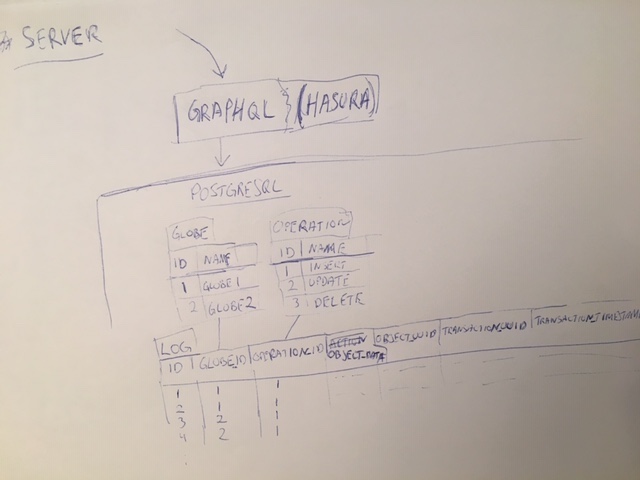 SERVER
GRAPHQL (HASURA)
POSTGRESQL
GLOBE
ID NAME
1 GLOBE1
2 GLOBE2
OPERATION
ID NAME
1 INSERT
2 UPDATE
3 DELETE
LOG
ID GLOBE_ID OPERATION_ID OBJECT_DATA OBJECT_UUID TRANSACTION_UUID
1 1 1
2 1 1
3 2 1
4 2 1